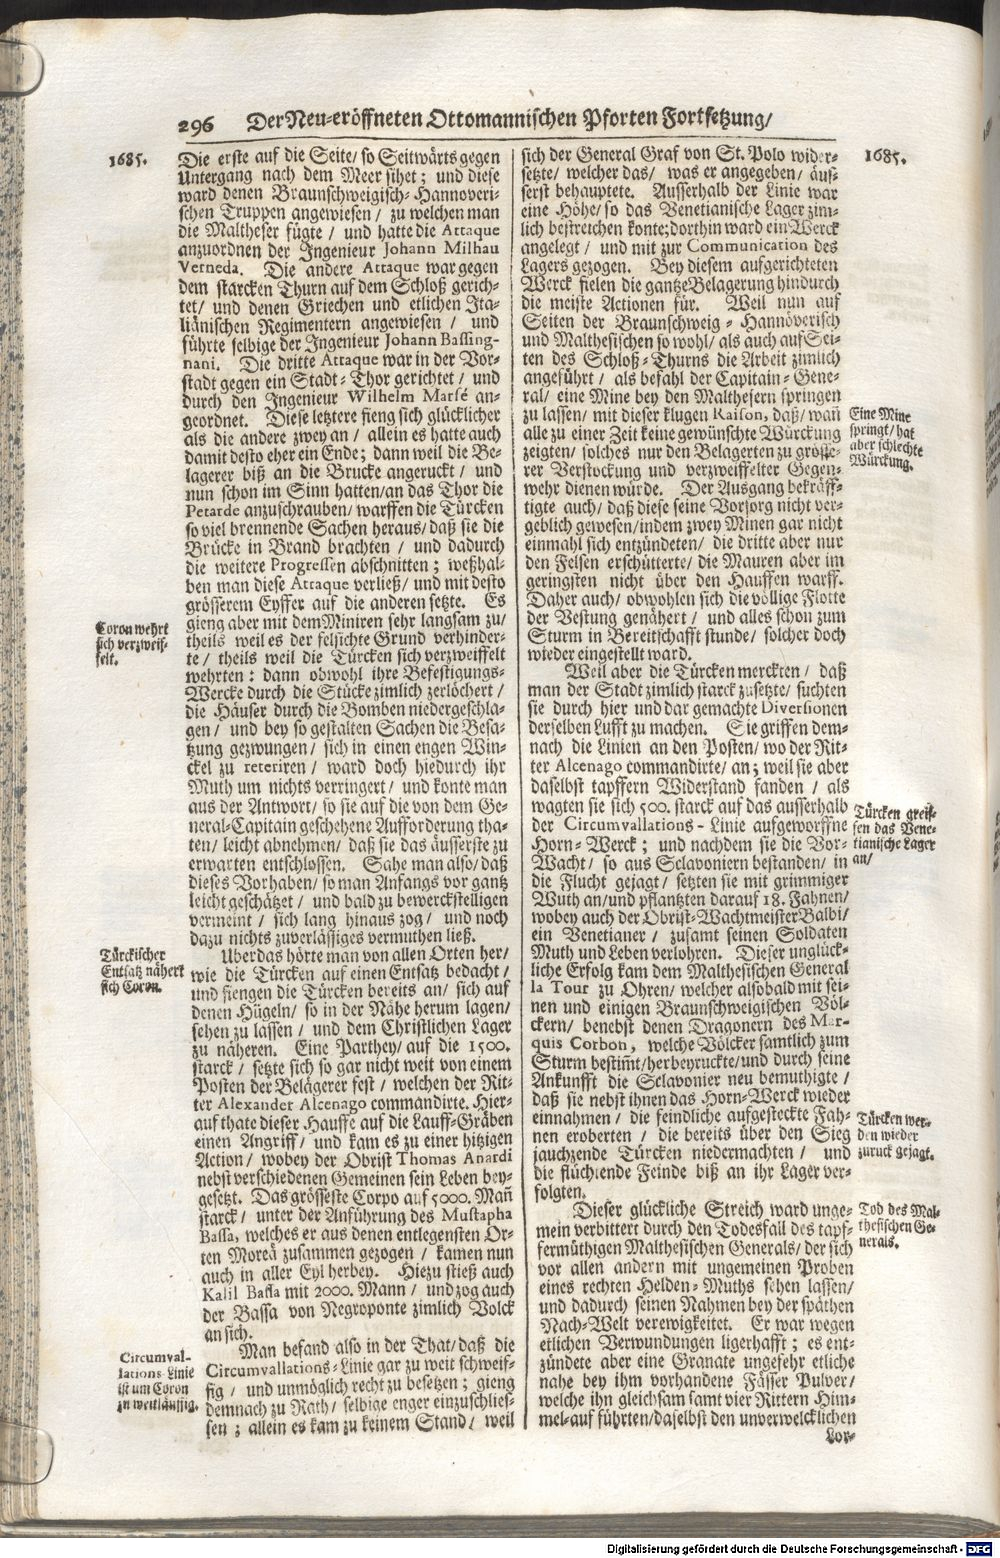 296 Der Neu-eröffneten Ottomannischen Pforten Fortsetzung/
1685.
Die erste auf die Seite/ so Seitwärts gegen
Untergang nach dem Meer sihet; und diese
ward denen Braunschweigisch-Hannoveri-
schen Truppen angewiesen/ zu welchen man
die Maltheser fügte/ und hatte die Attaque
anzuordnen der Ingenieur Johann Milhau
Verneda. Die andere Attaque war gegen
dem starcken Thurn auf dem Schloß gerich-
tet/ und denen Griechen und etlichen Ita-
liänischen Regimentern angewiesen/ und
führte selbige der Ingenieur Johann Bassing-
nani. Die dritte Attaque war in der Vor-
stadt gegen ein Stadt-Thor gerichtet/ und
durch den Ingenieur Wilhelm Marsé an-
geordnet. Diese letztere fieng sich glücklicher
als die andere zwey an/ allein es hatte auch
damit desto eher ein Ende; dann weil die Be-
lagerer biß an die Brucke angeruckt/ und
nun schon im Sinn hatten/ an das Thor die
Petarde anzuschrauben/ warffen die Türcken
so viel brennende Sachen heraus/ daß sie die
Brücke in Brand brachten/ und dadurch
die weitere Progressen abschnitten; weßhal-
ben man diese Attaque verließ/ und mit desto
grösserem Eyffer auf die anderen setzte. Es
gieng aber mit dem Miniren sehr langsam zu/
theils weil es der felsichte Grund verhinder-
te/ theils weil die Türcken sich verzweiffelt
wehrten: dann obwohl ihre Befestigungs-
Wercke durch die Stücke zimlich zerlöchert/
die Häuser durch die Bomben niedergeschla-
gen/ und bey so gestalten Sachen die Besa-
tzung gezwungen/ sich in einen engen Win-
ckel zu reteriren/ ward doch hiedurch ihr
Muth um nichts verringert/ und konte man
aus der Antwort/ so sie auf die von dem Ge-
neral-Capitain geschehene Aufforderung tha-
ten/ leicht abnehmen/ daß sie das äusserste zu
erwarten entschlossen. Sahe man also/ daß
dieses Vorhaben/ so man Anfangs vor gantz
leicht geschätzet/ und bald zu bewerckstelligen
vermeint/ sich lang hinaus zog/ und noch
dazu nichts zuverlässiges vermuthen ließ.
Uberdas hörte man von allen Orten her/
wie die Türcken auf einen Entsatz bedacht/
und fiengen die Türcken bereits an/ sich auf
denen Hügeln/ so in der Nähe herum lagen/
sehen zu lassen/ und dem Christlichen Lager
zu näheren. Eine Parthey/ auf die 1500.
starck/ setzte sich so gar nicht weit von einem
Posten der Belägerer fest/ welchen der Rit-
ter Alexander Alcenago commandirte. Hier-
auf thate dieser Hauffe auf die Lauff-Gräben
einen Angriff/ und kam es zu einer hitzigen
Action/ wobey der Obrist Thomas Anardi
nebst verschiedenen Gemeinen sein Leben bey-
gesetzt. Das grösseste Corpo auf 5000. Mañ
starck/ unter der Anführung des Mustapha
Bassa, welches er aus denen entlegensten Or-
ten Moreä zusammen gezogen/ kamen nun
auch in aller Eyl herbey. Hiezu stieß auch
Kalil Bassa mit 2000. Mann/ und zog auch
der Bassa von Negroponte zimlich Volck
an sich.
Man befand also in der That/ daß die
Circumvallations-Linie gar zu weit schweif-
fig/ und unmöglich recht zu besetzen; gieng
demnach zu Rath/ selbige enger einzuschlies-
sen; allein es kam zu keinem Stand/ weil
Coron wehrt
sich verzweif-
felt.
Türckischer
Entsatz nähert
sich Coron.
Circumval-
lations-Linie
ist um Coron
zu weitläuffig.
sich der General Graf von St. Polo wider-
setzte/ welcher das/ was er angegeben/ äus-
serst behauptete. Ausserhalb der Linie war
eine Höhe/ so das Venetianische Lager zim-
lich bestreichen konte; dorthin ward ein Werck
angelegt/ und mit zur Communication des
Lagers gezogen. Bey diesem aufgerichteten
Werck fielen die gantze Belagerung hindurch
die meiste Actionen für. Weil nun auf
Seiten der Braunschweig-Hannöverisch
und Malthesischen so wohl/ als auch auf Sei-
ten des Schloß-Thurns die Arbeit zimlich
angeführt/ als befahl der Capitain-Gene-
ral/ eine Mine bey den Malthesern springen
zu lassen/ mit dieser klugen Raison, daß/ wañ
alle zu einer Zeit keine gewünschte Würckung
zeigten/ solches nur den Belagerten zu grösse-
rer Verstockung und verzweiffelter Gegen-
wehr dienen würde. Der Ausgang bekräff-
tigte auch/ daß diese seine Vorsorg nicht ver-
geblich gewesen/ indem zwey Minen gar nicht
einmahl sich entzündeten/ die dritte aber nur
den Felsen erschütterte/ die Mauren aber im
geringsten nicht über den Hauffen warff.
Daher auch/ obwohlen sich die völlige Flotte
der Vestung genähert/ und alles schon zum
Sturm in Bereitschafft stunde/ solcher doch
wieder eingestellt ward.
Weil aber die Türcken merckten/ daß
man der Stadt zimlich starck zusetzte/ suchten
sie durch hier und dar gemachte Diversionen
derselben Lufft zu machen. Sie griffen dem-
nach die Linien an den Posten/ wo der Rit-
ter Alcenago commandirte/ an; weil sie aber
daselbst tapffern Widerstand fanden/ als
wagten sie sich 500. starck auf das ausserhalb
der Circumvallations-Linie aufgeworffne
Horn-Werck; und nachdem sie die Vor-
Wacht/ so aus Sclavoniern bestanden/ in
die Flucht gejagt/ setzten sie mit grimmiger
Wuth an/ und pflantzten darauf 18. Fahnen/
wobey auch der Obrist-Wachtmeister Balbi/
ein Venetianer/ zusamt seinen Soldaten
Muth und Leben verlohren. Dieser unglück-
liche Erfolg kam dem Malthesischen General
la Tour zu Ohren/ welcher alsobald mit sei-
nen und einigen Braunschweigischen Völ-
ckern/ benebst denen Dragonern des Mar-
quis Corbon, welche Völcker samtlich zum
Sturm bestim̃t/ herbeyruckte/ und durch seine
Ankunfft die Sclavonier neu bemuthigte/
daß sie nebst ihnen das Horn-Werck wieder
einnahmen/ die feindliche aufgesteckte Fah-
nen eroberten/ die bereits über den Sieg
jauchzende Türcken niedermachten/ und
die flüchtende Feinde biß an ihr Lager ver-
folgten.
Dieser glückliche Streich ward unge-
mein verbittert durch den Todesfall des tapf-
fermüthigen Malthesischen Generals/ der sich
vor allen andern mit ungemeinen Proben
eines rechten Helden-Muths sehen lassen/
und dadurch seinen Nahmen bey der späthen
Nach-Welt verewigkeitet. Er war wegen
etlichen Verwundungen ligerhafft; es ent-
zündete aber eine Granate ungefehr etliche
nahe bey ihm vorhandene Fässer Pulver/
welche ihn gleichsam samt vier Rittern Him-
mel-auf führten/ daselbst den unverwelcklichen
Lor-
1685.
Eine Mine
springt/ hat
aber schlechte
Würckung.
Türcken greif-
fen das Vene-
tianische Lager
an/
Türcken wer-
den wieder
zuruck gejagt.
Tod des Mal-
thesischen Ge-
nerals.
Digitalisierung gefördert durch die Deutsche Forschungsgemeinschaft - DFG